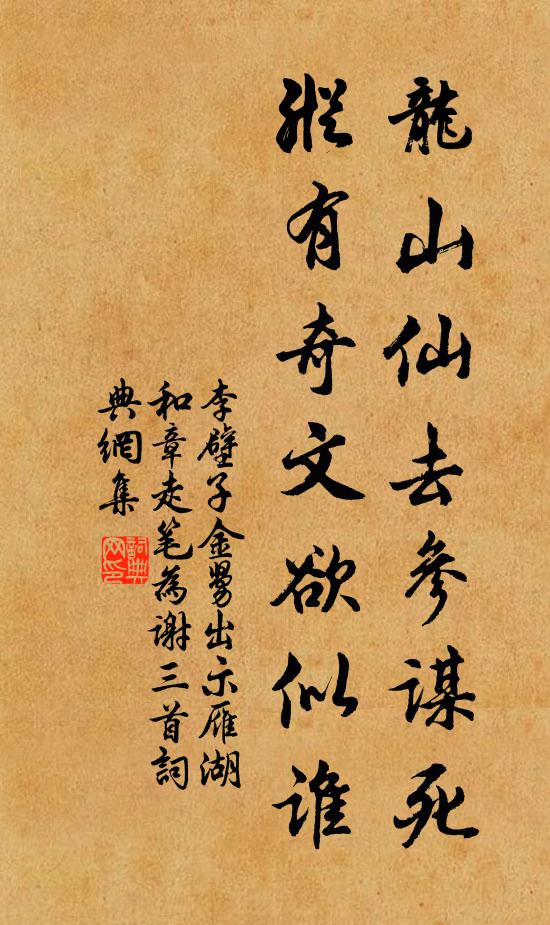 龍山仙去參謀死
縱有奇文欲似誰
李壁子金舅出示雁湖
和章走笔為謝三首詞
典網集
詞典
网印